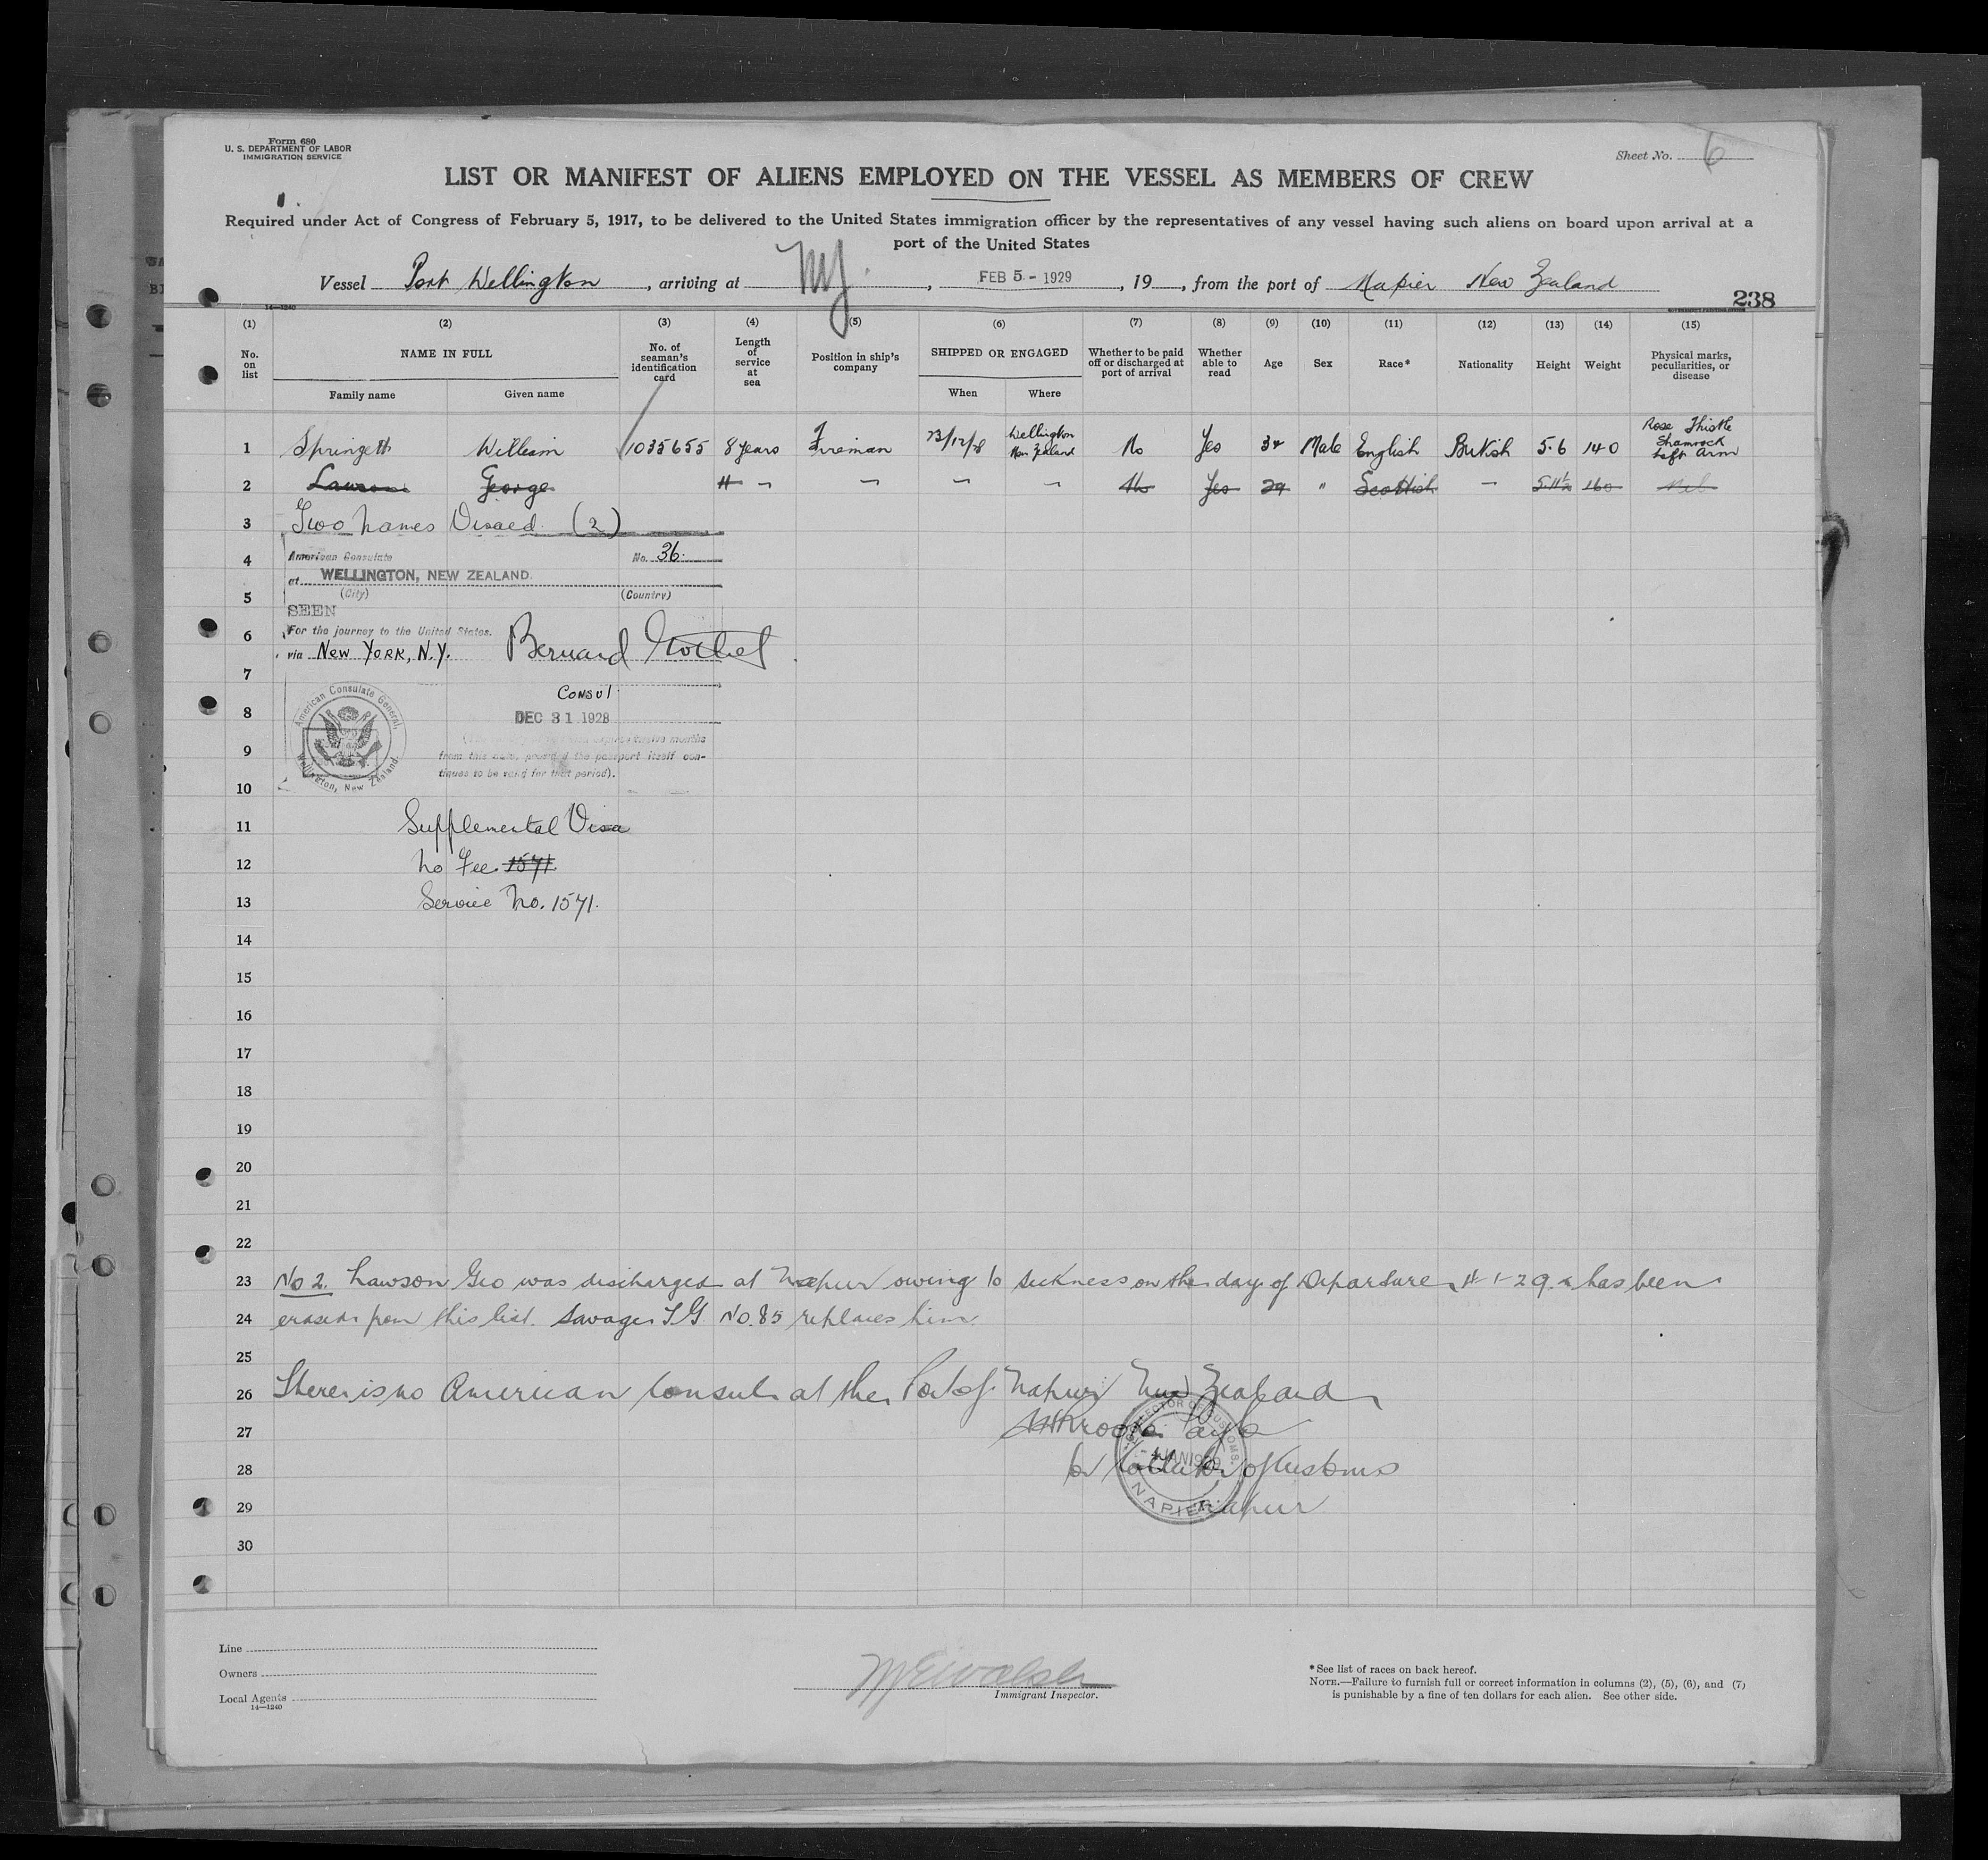 Form 680
U. S. DEPARTMENT OF LABOR
IMMIGRATION SERVICE
Sheet No. 6
LIST OR MANIFEST OF ALIENS EMPLOYED ON THE VESSEL AS MEMBERS OF CREW
Required under Act of Congress of February 5, 1917, to be delivered to the United States immigration officer by the representatives of any vessel having such aliens on board upon arrival at a
port of the United States
Vessel Port Wellington, arriving at NY, FEB 5 - 1929, 19, from the port of Napier New Zealand
14—1240
238
(1) (2) (3) (4) (5) (6) (7) (8) (9) (10) (11) (12) (13) (14) (15)
No. on list NAME IN FULL Family name Given name No. of seaman's identification card Length of service at sea Position in ship's company SHIPPED OR ENGAGED When Where Whether to be paid off or discharged at port of arrival Whether able to read Age Sex Race* Nationality Height Weight Physical marks, peculiarities, or disease
1 Springett William 1035655 8 years Fireman 23/12/28 Wellington New Zealand No Yes 34 Male English British 5.6 140 Rose Thistle Shamrock Left Arm
2 Lawson George 4 - - - - No Yes 29 " Scottish - 5.11½ 160 Nil
3 Two names Visaed (2)
4 American Consulate No. 36.
at WELLINGTON, NEW ZEALAND.
5 (City) (Country)
SEEN
6 For the journey to the United States.
via New York, N.Y. Bernard
7
Consul
8 DEC 31 1928
American Consulate General, Wellington, New Zealand.
9 months
from this date, provided the passport itself con-
tinues to be valid for that period).
10
11 Supplemental Visa
12 No Fee 1571
13 Service No. 1571.
14
15
16
17
18
19
20
21
22
23 No 2. Lawson Geo was discharged at Napier owing to sickness on the day of Departure 4-1-29 & has been
24 erased from this list. Savage T.G. No. 85 replaces him.
25
26 There is no American Consul at the Port of Napier New Zealand
27
COLLECTOR OF CUSTOMS
- 4 JAN 1929
NAPIER
28 for Collector of Customs
29 Napier
30
Line
Owners
Local Agents
14—1240
Walsh
Immigrant Inspector.
* See list of races on back hereof.
NOTE.—Failure to furnish full or correct information in columns (2), (5), (6), and (7)
is punishable by a fine of ten dollars for each alien. See other side.